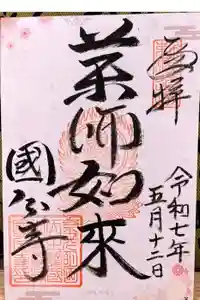 奉拝
令和七年
五月十二日
薬師如來
國分寺